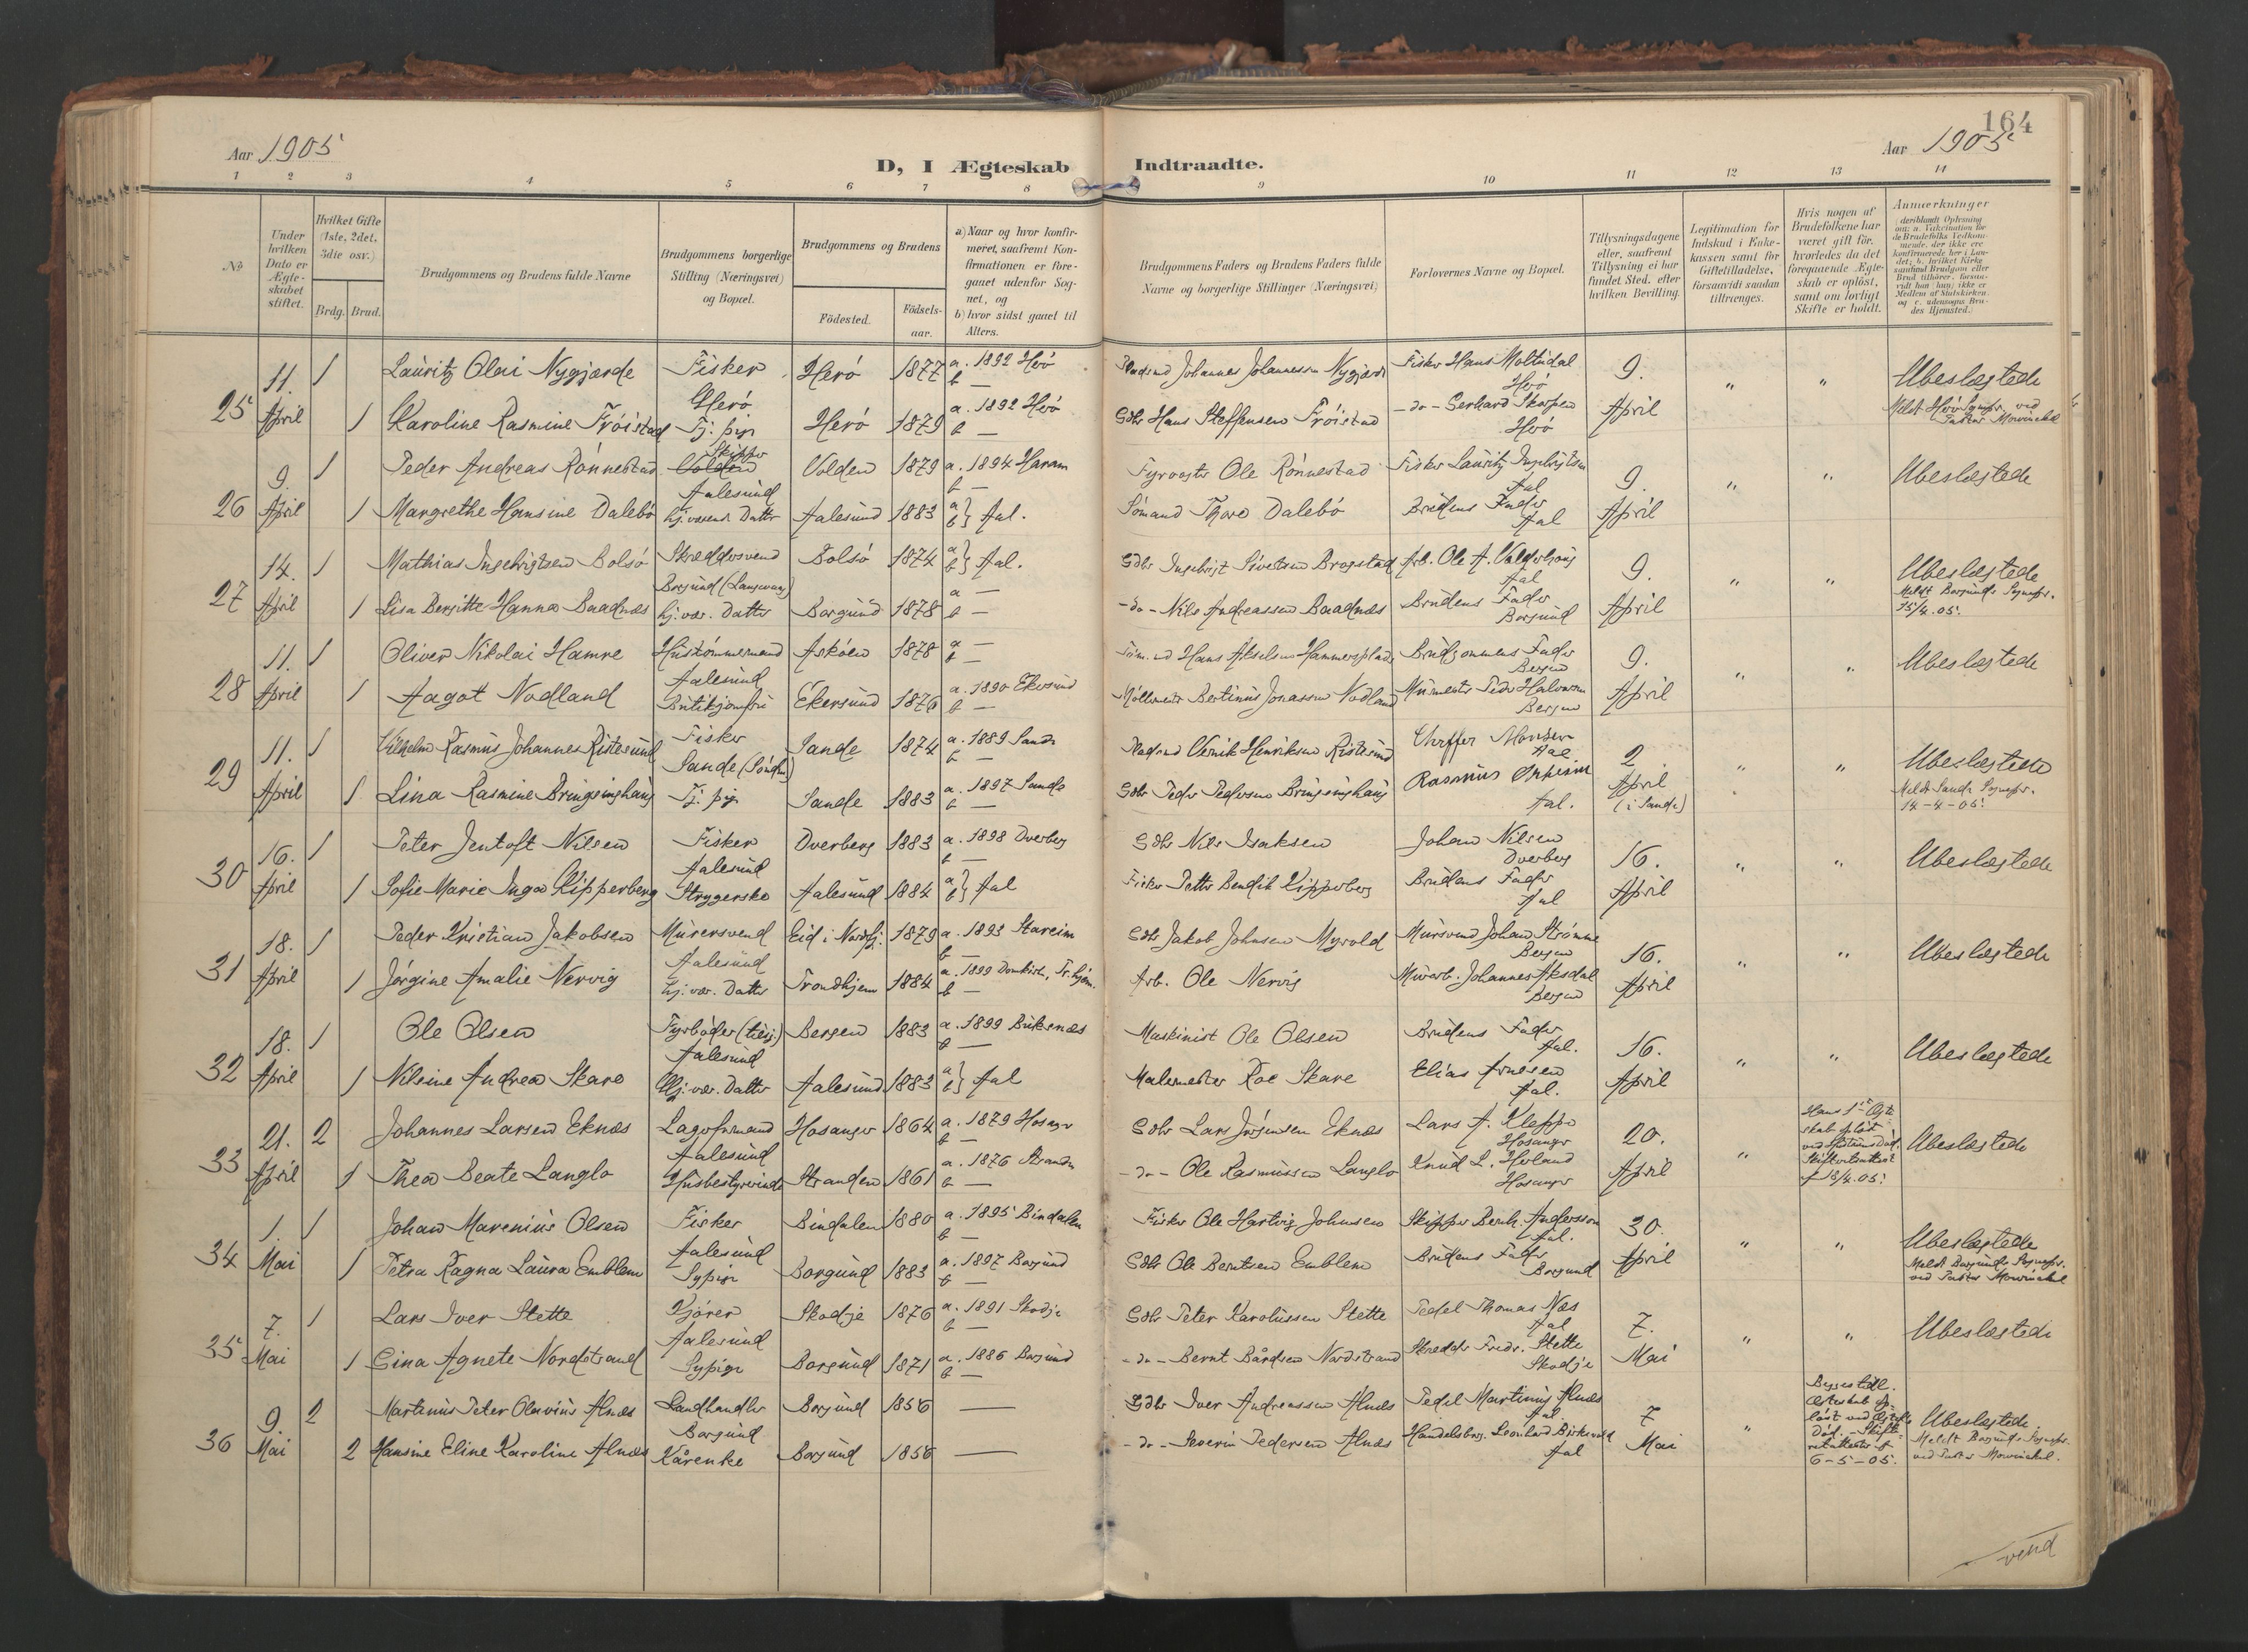 164
Aar 1905
D, I Ægteskab Indtraadte.
Aar 1905
1 2 3 4 5 6 7 8 9 10 11 12 13 14
№
Under hvilken Dato er Ægteskabet stiftet.
Hvilket Gifte (1ste, 2det, 3die osv.)
Brdg. Brud.
Brudgommens og Brudens fulde Navne
Brudgommens borgerlige Stilling (Næringsvei) og Bopæl.
Brudgommens og Brudens
Födested. Födsels-aar.
a) Naar og hvor konfirmeret, saafremt Konfirmationen er foregaaet udenfor Sognet, og
b) hvor sidst gaaet til Alters.
Brudgommens Faders og Brudens Faders fulde Navne og borgerlige Stillinger (Næringsvei)
Forlovernes Navne og Bopæl.
Tillysningsdagene eller, saafremt Tillysning ei har fundet Sted, efter hvilken Bevilling.
Legitimation for Indskud i Enkekassen samt for Giftetilladelse, forsaavidt saadan tiltrænges.
Hvis nogen af Brudefolkene har været gift för, hvorledes da det foregaaende Ægteskab er oplöst, samt om lovligt Skifte er holdt.
Anmærkninger
25 11. April 1 Lauritz Olai Nygjærde Fisker Herö Herö 1877 a. 1892 Herö b — Johannes Johannessen Nygjærde Fisker Hans Moltudal Herö 9. April " " Ubeslægtede
1 Karoline Rasmine Fröistad Tj. pige Herö 1879 a. 1892 Herö b — Gdbr Hans Steffensen Fröistad -do- Gerhard Skorpen Herö Meldt Herö Sognepr. ved Pastor Mowinckel
26 9. April 1 Peder Andreas Rönnestad Skipper Aalesund Volden 1879 a. 1894 Haram b — Fyrvogter Ole Rönnestad Fisker Lauritz Ingebrigtsen Aal 9. April " " Ubeslægtede
1 Margrethe Hansine Dalebö hj. værend Datter Aalesund 1883 a b } Aal. Sömand Thore Dalebö Brudens Fader Aal
27 14. April 1 Mathias Ingebrigtsen Bolsö Skreddersvend Borgund Bolsö 1874 a b } Aal. Gdbr Ingebrigt Sivertsen Bragstad Arb. Ole A. Valderhaug Aal 9. April " " Ubeslægtede
1 Lisa Bergitte Hanna Baadnæs hj. vær. Datter Borgund 1878 a — b — -do- Nils Andreassen Baadnæs Brudens Fader Borgund Meldt Borgunds Sognepr. 15/4.05.
28 11. April 1 Oliver Nikolai Hamre Hustömmermand Aalesund Asköen 1878 a — b — Hans Akselsen Hammersplads Brudgommens Fader Bergen 9. April " " Ubeslægtede
1 Aagot Nodland Butikjomfru Ekersund 1876 a. 1890 Ekersund b — Bertinus Jonassen Nodland Murmester Peder Halvorsen Bergen
29 11. April 1 Vilhelm Rasmus Johannes Ristesund Fisker Sande (Söndm) Sande 1874 a. 1889 Sande b — Henriksen Ristesund Monsen Aal 2 April (i Sande) " " Ubeslægtede
1 Lina Rasmine Bringsinghaug Tj. pige Sande 1883 a. 1897 Sande b — Gdbr Peder Pedersen Bringsinghaug Rasmus Orheim Aal. Meldt Sande Sognepr. 14-4-05.
30 16. April 1 Peter Jentoft Nilsen Fisker Aalesund Dverberg 1883 a. 1898 Dverberg b — Gdbr Nils Isaksen Johan Nilsen Dverberg 16. April " " Ubeslægtede
1 Sofie Marie Inga Kipperberg Strygerske Aalesund 1884 a b } Aal Fisker Petter Bendik Kipperberg Brudens Fader Aal
31 18. April 1 Peder Kristian Jakobsen Murersvend Aalesund Eid i Nordfj. 1879 a. 1893 Stareim b — Gdbr Jakob Johnsen Myrold Mursvend Johan Strömme Bergen 16. April " " Ubeslægtede
1 Jörgine Amalie Nervig hj. vær. Datter Trondhjem 1884 a. 1899 Domkirk., Tr.hjem. b — Arb. Ole Nervig Murarb. Johannes Aksdal Bergen
32 18. April 1 Ole Olsen Fyrböder Aalesund Bergen 1883 a. 1899 Buksnæs b — Maskinist Ole Olsen Brudens Fader Aal. 16. April " " Ubeslægtede
1 Nilsine Andrea Skare Hj. vær. Datter Aalesund 1883 a b } Aal Malermester Roe Skare Elias Arnesen Aal.
33 21. April 2 Johannes Larsen Eknæs Lagerformand Aalesund Hosanger 1864 a. 1879 Hosanger b — Gdbr Lars Jörgensen Eknæs Lars A. Kleppe Hosanger 20. April " Hans 1ste Ægteskab oplöst ved Hustruens Död. Skifteretsattest af 18/4.05. Ubeslægtede
1 Thea Beate Langlo Husbestyrerinde Stranden 1861 a. 1876 Stranden b — -do- Ole Rasmussen Langlo Knud L. Herland Hosanger
34 1. Mai 1 Johan Marenius Olsen Fisker Aalesund Bindalen 1880 a. 1895 Bindalen b — Fisker Ole Hartvig Johnsen Skipper Bernh. Anderssen Aal. 30. April " " Ubeslægtede
1 Petra Ragna Laura Emblem Sypige Borgund 1883 a. 1897 Borgund b — Gdbr Ole Berntsen Emblem Brudens Fader Borgund Meldt Borgunds Sognepr. ved Pastor Mowinckel
35 7. Mai 1 Lars Iver Stette Kjörer Aalesund Skodje 1876 a. 1891 Skodje b — Gdbr Peter Karolussen Stette Pedel Thomas Næs Aal 7. Mai " " Ubeslægtede
1 Gina Agnete Nordstrand Sypige Borgund 1871 a. 1886 Borgund b — -do- Bernt Bårdsen Nordstrand Skredder Fredr. Stette Skodje
36 9. Mai 2 Martinus Peter Olavius Alnæs Landhandler Borgund Borgund 1856 — Gdbr Iver Andreassen Alnæs Pedel Martinus Alnæs Aal 7 Mai " Begges tidl. Ægteskab oplöst ved Ægtef. Död. – Skifteretsattester af 6-5-05. Ubeslægtede.
2 Hansine Eline Karoline Alnæs Kårenke Borgund 1856 — -do- Severin Pedersen Alnæs Handelsborg. Leonhard Aal Meldt Borgunds Sognepr. ved Pastor Mowinckel.
vend